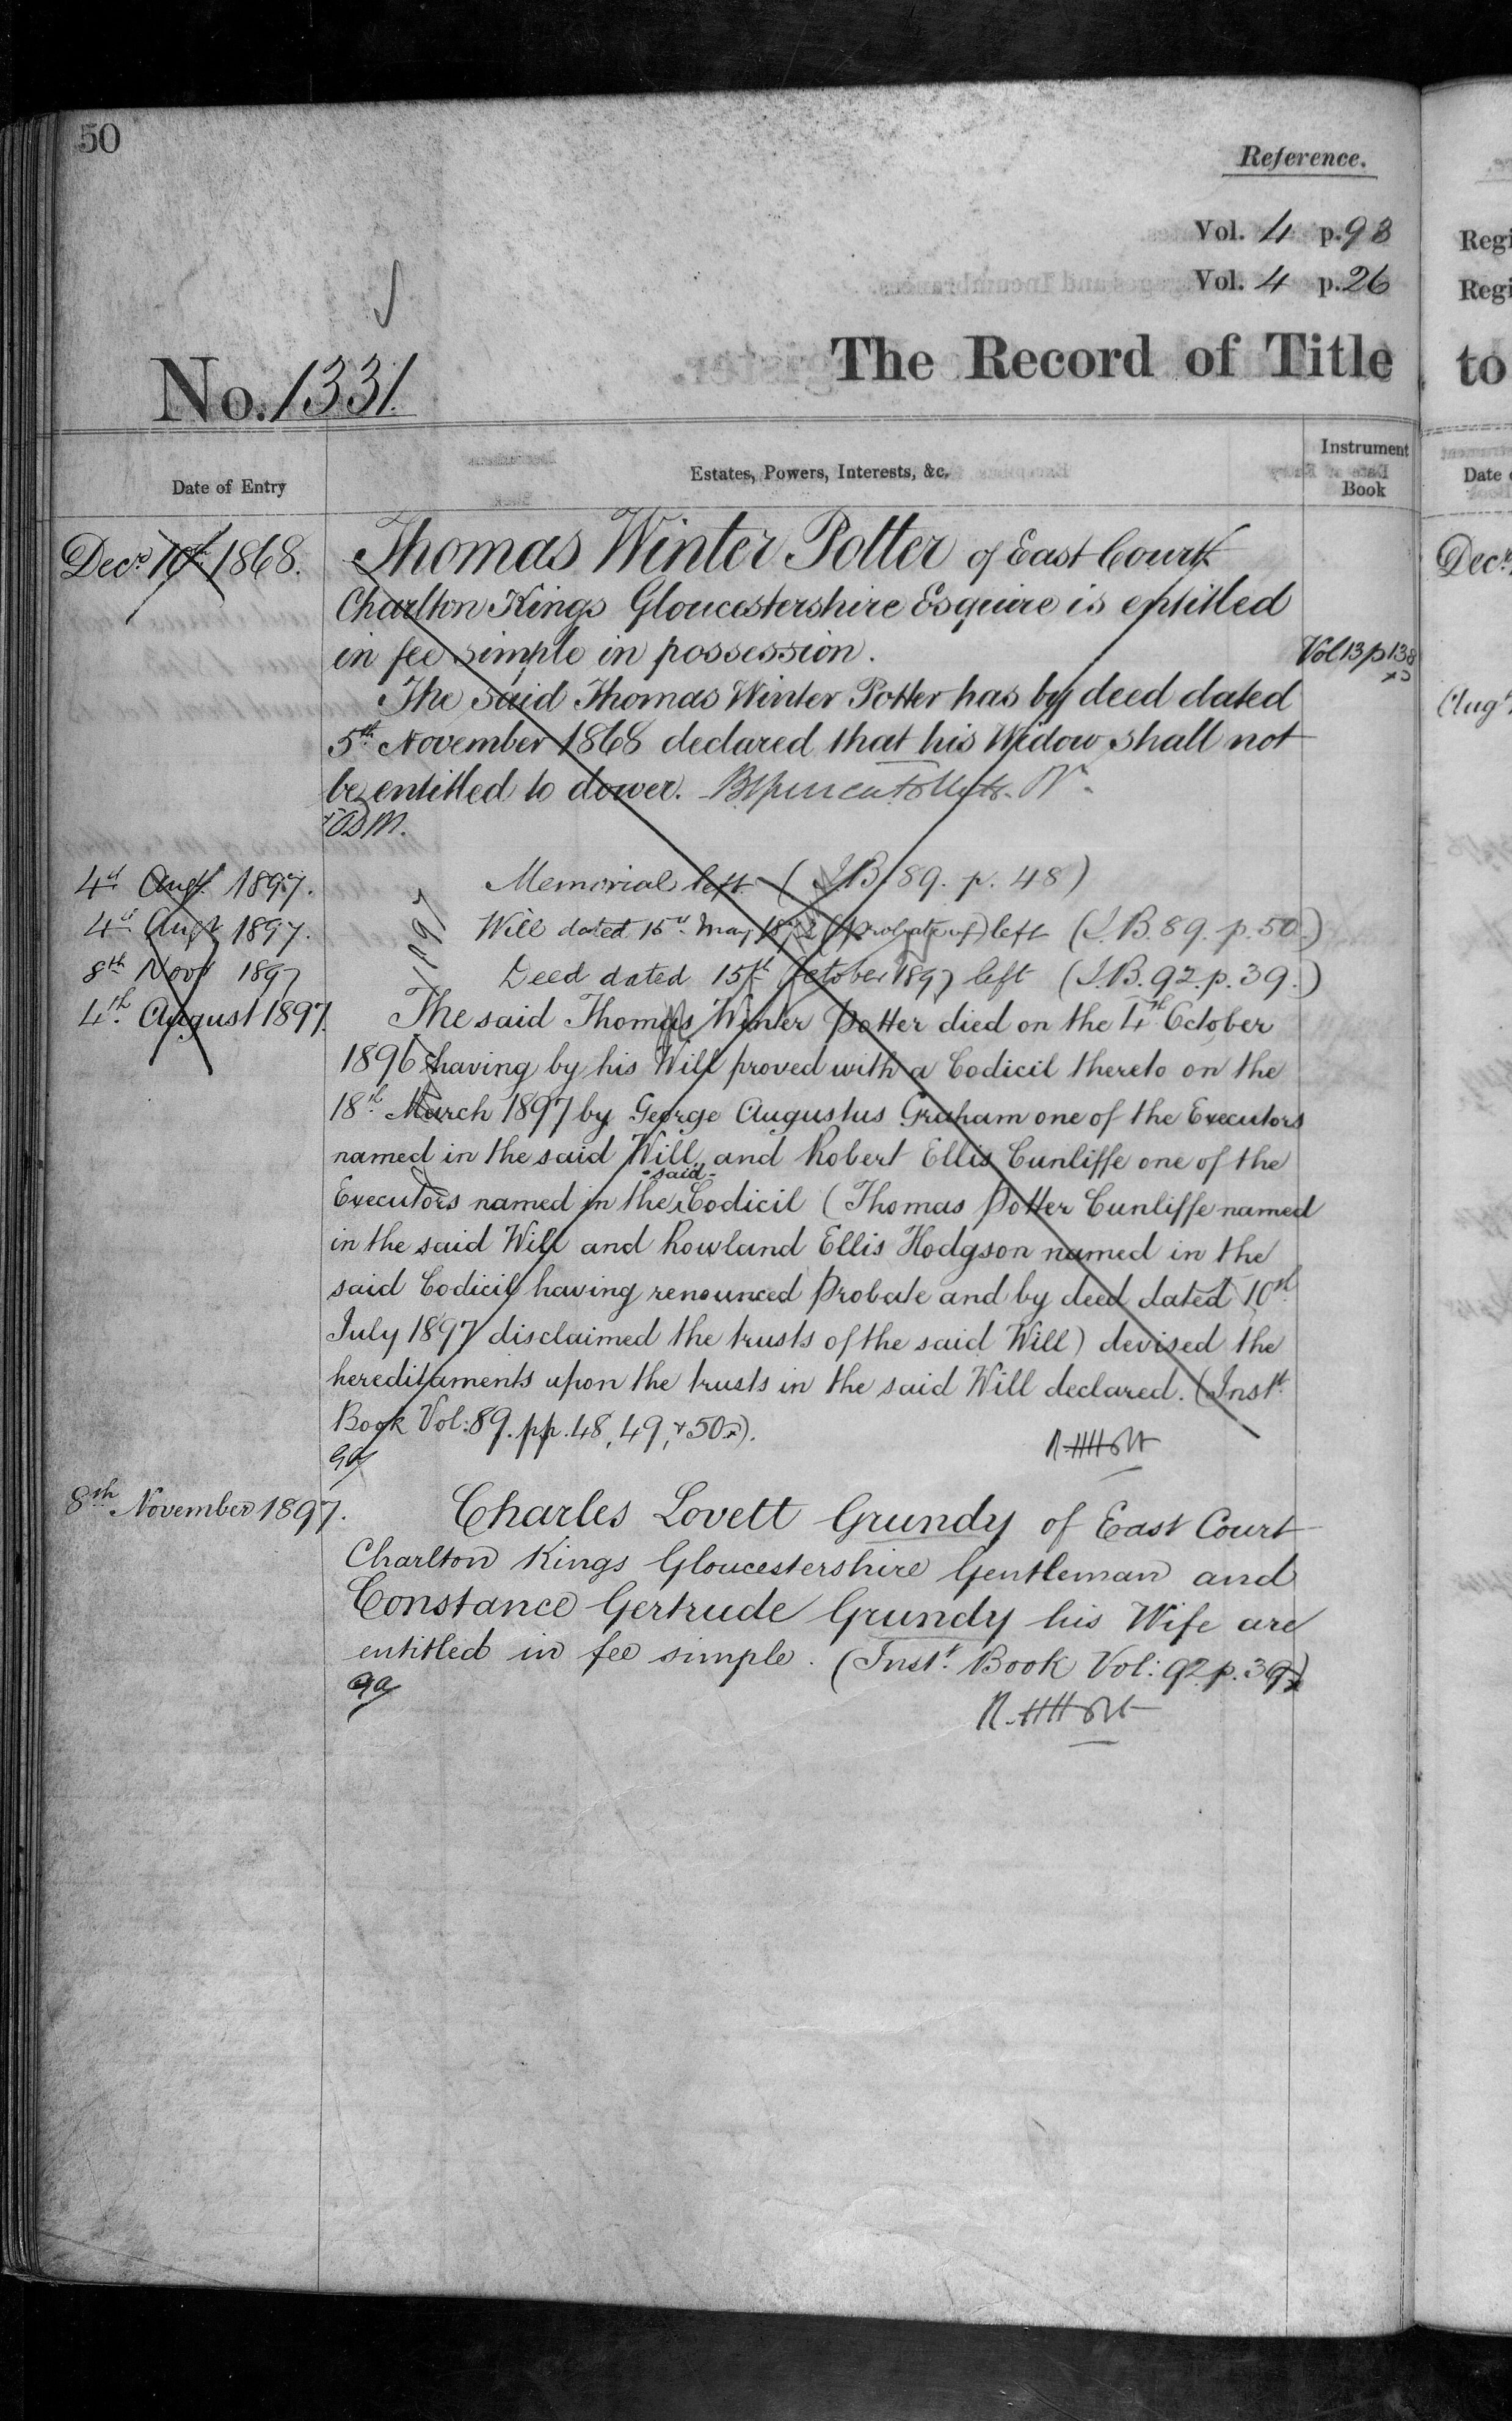 50
Reference.
Vol. 4 p. 93
Vol. 4 p. 26
No. 1331.
The Record of Title
Date of Entry
Estates, Powers, Interests, &c.
Instrument
Book
Decr. 10th 1868.
Thomas Winter Potter of East Court
Charlton Kings Gloucestershire Esquire is entitled
in fee simple in possession.
Vol 13 p 138
The said Thomas Winter Potter has by deed dated
5th November 1868 declared that his Widow shall not
be entitled to dower.
4th Augt. 1897.
Memorial left (I.B. 89. p. 48)
4th Augt 1897.
Will dated 15th May (Probate of) left (I.B. 89. p. 50.)
8th Novr 1897
Deed dated 15th October 1897 left (I.B. 92. p. 39.)
4th August 1897.
The said Thomas Winter Potter died on the 4th October
1896 having by his Will proved with a Codicil thereto on the
18th March 1897 by George Augustus Graham one of the Executors
named in the said Will and Robert Ellis Cunliffe one of the
Executors named in the said Codicil (Thomas Potter Cunliffe named
in the said Will and Rowland Ellis Hodgson named in the
said Codicil having renounced Probate and by deed dated 10th
July 1897 disclaimed the trusts of the said Will) devised the
hereditaments upon the trusts in the said Will declared. (Instt.
Book Vol: 89. pp. 48, 49, & 50).
8th November 1897.
Charles Lovett Grundy of East Court
Charlton Kings Gloucestershire Gentleman and
Constance Gertrude Grundy his Wife are
entitled in fee simple. (Instt. Book Vol: 92. p. 39)
Regi
Regi
to
Date
Decr.
Augt